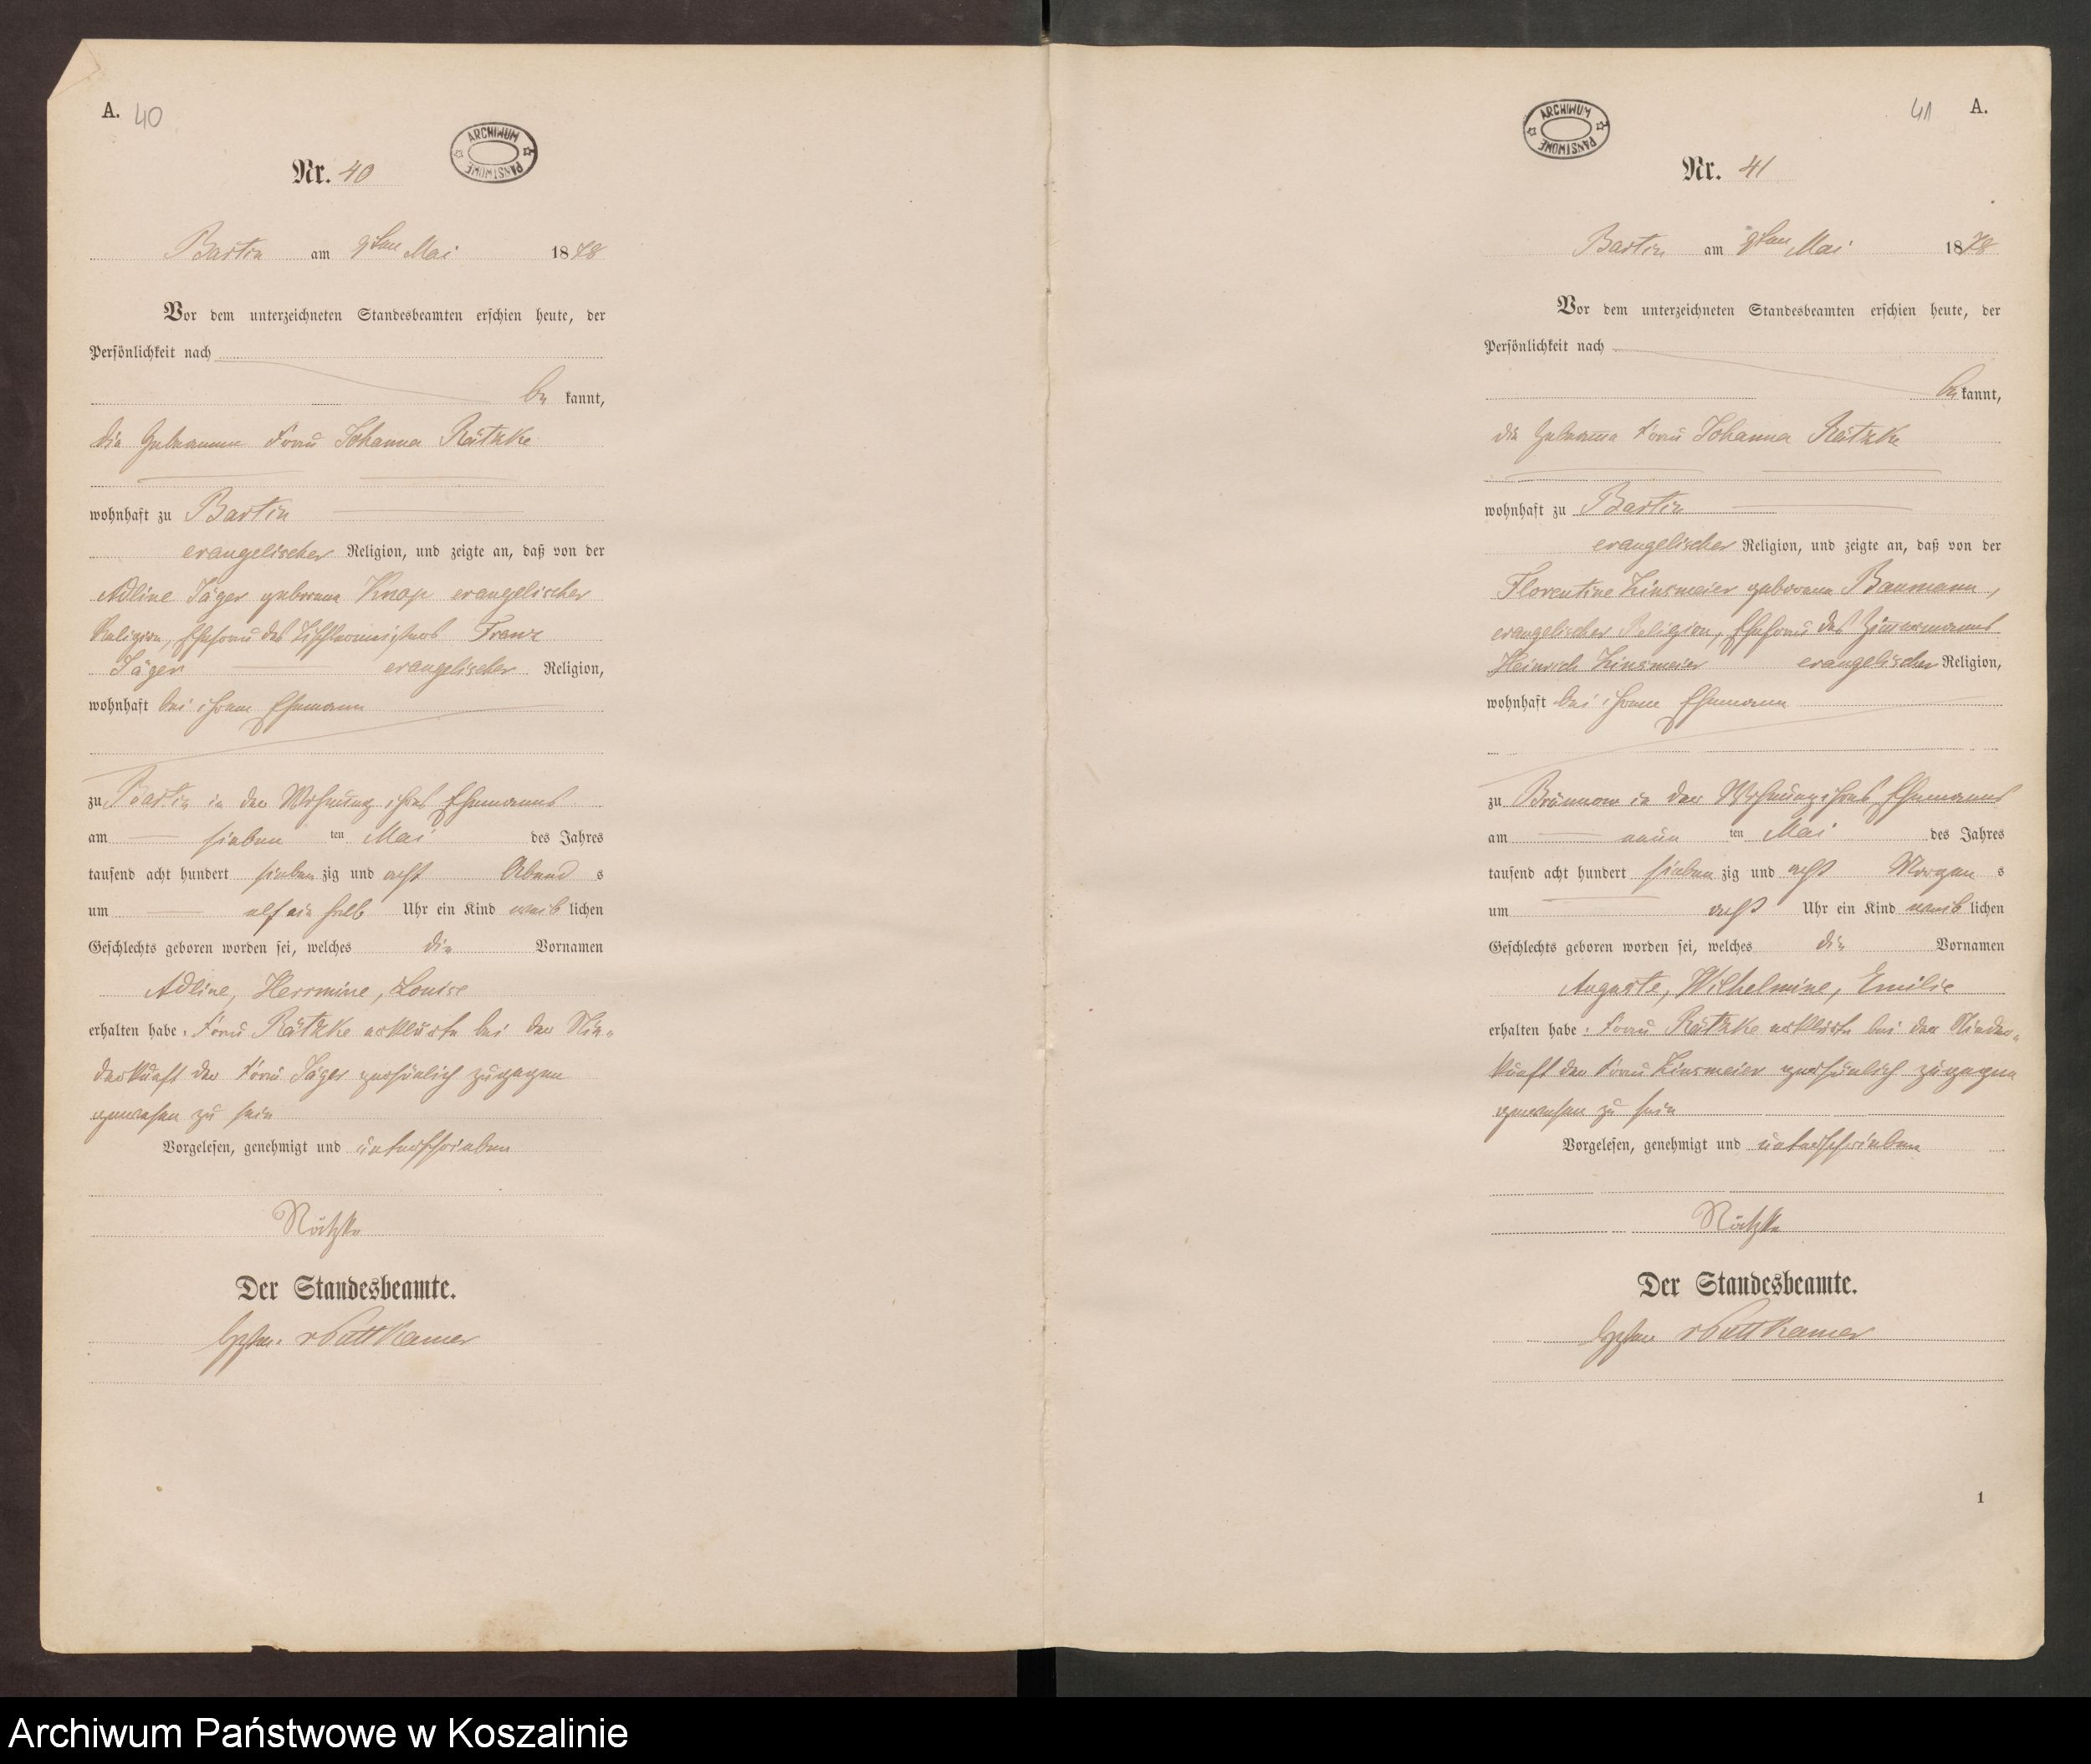 A. 40
ARCHIWUM PAŃSTWOWE
Nr. 40
Bartin am 9ten Mai 1878
Vor dem unterzeichneten Standesbeamten erschien heute, der
Persönlichkeit nach
be kannt,
die Hebamme Frau Johanna Rätzke
wohnhaft zu Bartin
evangelischer Religion, und zeigte an, daß von der
Adline Jäger geborene Knop evangelischer
Religion, Ehefrau des Tischlermeisters Franz
Jäger evangelischer Religion,
wohnhaft bei ihrem Ehemann
zu Bartin in der Wohnung ihres Ehemannes
am sieben ten Mai des Jahres
tausend acht hundert sieben zig und acht Abend s
um elf ein halb Uhr ein Kind weib lichen
Geschlechts geboren worden sei, welches die Vornamen
Adline, Herrmine, Louise
erhalten habe. Frau Rätzke erklärte bei der Nie-
derkunft der Frau Jäger persönlich zugegen
gewesen zu sein
Vorgelesen, genehmigt und unterschrieben
Rätzke
Der Standesbeamte.
v Puttkamer
41 A.
ARCHIWUM PAŃSTWOWE
Nr. 41
Bartin am 9ten Mai 1878
Vor dem unterzeichneten Standesbeamten erschien heute, der
Persönlichkeit nach
be kannt,
die Hebamme Frau Johanna Rätzke
wohnhaft zu Bartin
evangelischer Religion, und zeigte an, daß von der
Florentine Zinsmeier geborene Baumann,
evangelischer Religion, Ehefrau des Zimmermanns
Heinrich Zinsmeier evangelischer Religion,
wohnhaft bei ihrem Ehemann
zu Brünnow in der Wohnung ihres Ehemannes
am neun ten Mai des Jahres
tausend acht hundert sieben zig und acht Morgen s
um acht Uhr ein Kind weib lichen
Geschlechts geboren worden sei, welches die Vornamen
Auguste, Wilhelmine, Emilie
erhalten habe. Frau Rätzke erklärte bei der Nieder-
kunft der Frau Zinsmeier persönlich zugegen
gewesen zu sein
Vorgelesen, genehmigt und unterschrieben
Rätzke
Der Standesbeamte.
v Puttkamer
1
Archiwum Państwowe w Koszalinie